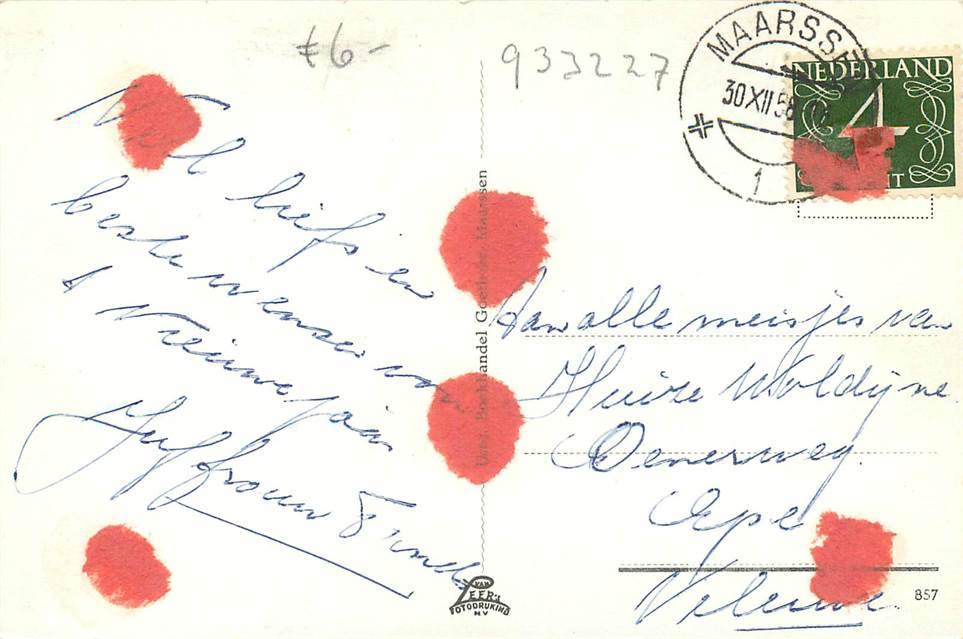 €6-
933227
MAARSSE
30 XII 58
1
NEDERLAND
4
CENT
Veel liefs en
beste wensen voor
't Nieuwe jaar
Juffrouw
Uitg. Boekhandel Maarssen
Aan alle meisjes van
Huize Woldijne
Oenerweg
Epe
Veluwe
VAN
LEER'S
FOTODRUKIND
NV
857